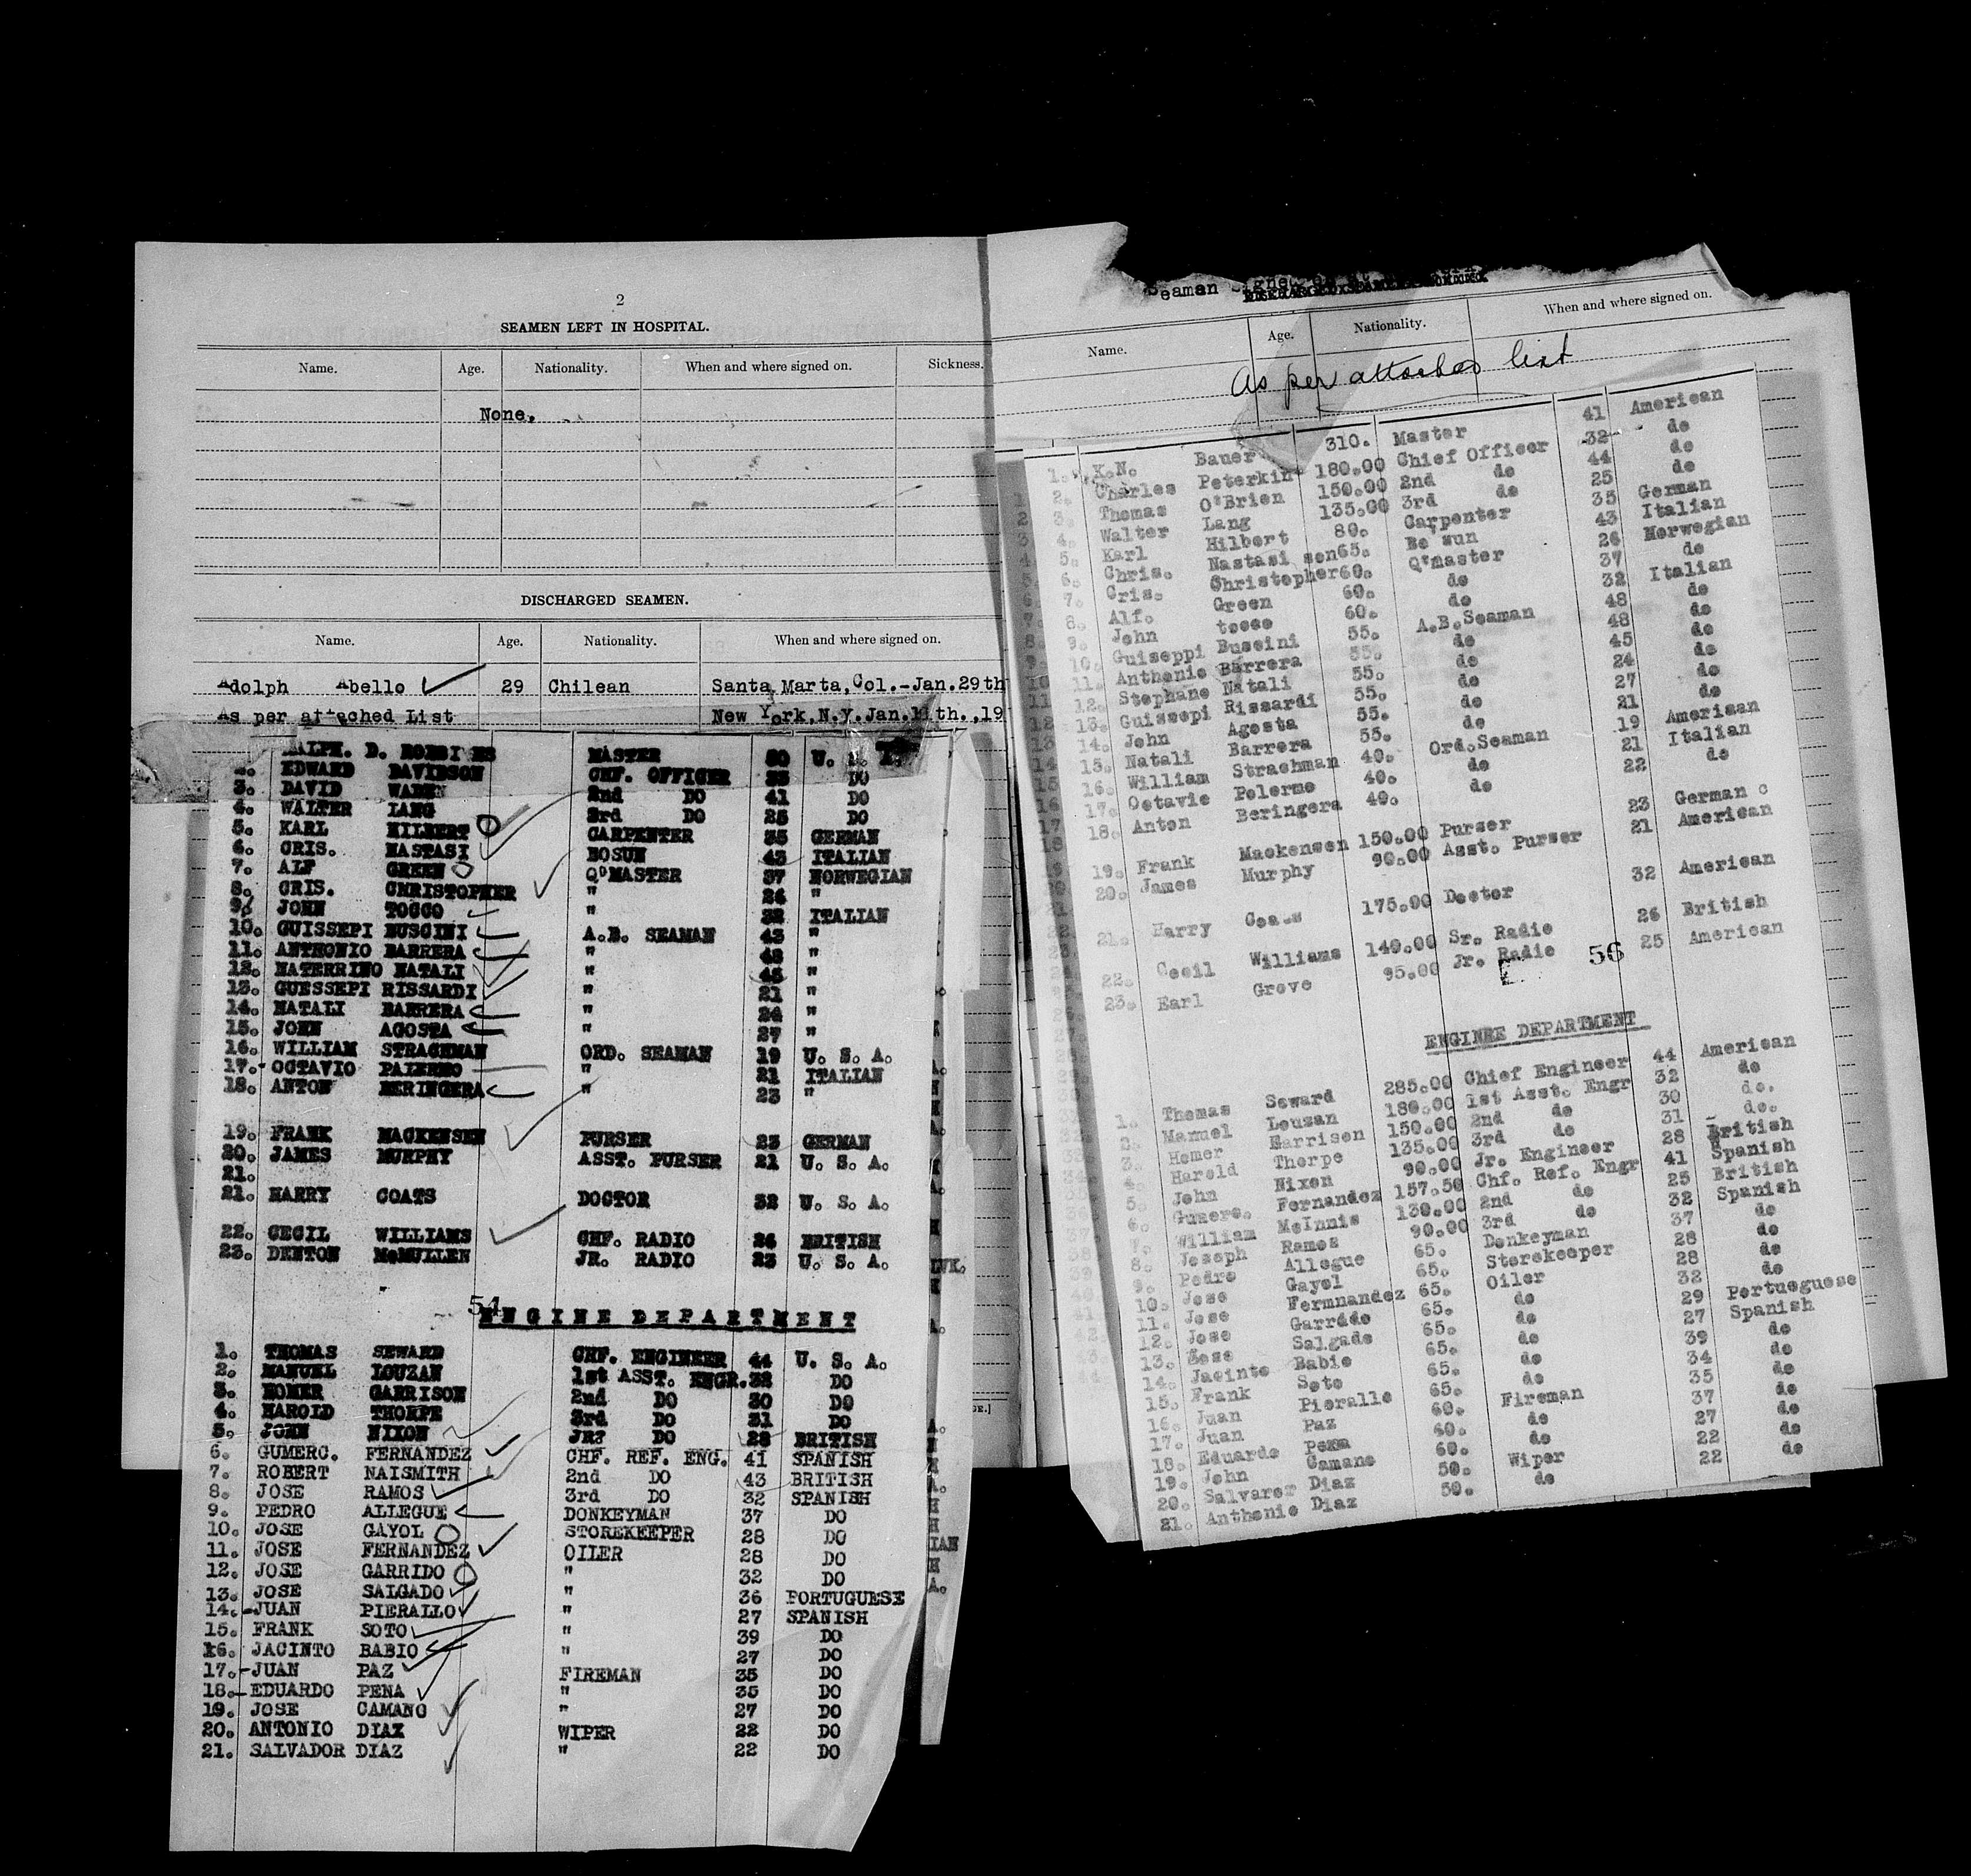 2
SEAMEN LEFT IN HOSPITAL.
Name. Age. Nationality. When and where signed on. Sickness.
None.
DISCHARGED SEAMEN.
Name. Age. Nationality. When and where signed on.
Adolph Abello 29 Chilean Santa Marta, Col.-Jan.29th
As per attached List New York, N.Y. Jan. th.,19
RALPH. D. MASTER 50 U. S. A.
2. EDWARD DAVIDSON CHF. OFFICER 33 DO
3. DAVID WADEN 2nd DO 41 DO
4. WALTER LANG 3rd DO 25 DO
5. KARL HILBERT CARPENTER 35 GERMAN
6. CRIS. NASTASI BOSUN 43 ITALIAN
7. ALF GREEN Q'MASTER 37 NORWEGIAN
8. CRIS. CHRISTOPHER " 26 "
9. JOHN TOCCO " 32 ITALIAN
10. GUISSEPI BUSCINI A.B. SEAMAN 43 "
11. ANTHONIO BARRERA " 48 "
12. NATERRINO NATALI " 45 "
13. GUESSEPI RISSARDI " 21 "
14. NATALI BARRERA " 24 "
15. JOHN AGOSTA " 27 "
16. WILLIAM STRACHMAN ORD. SEAMAN 19 U. S. A.
17. OCTAVIO PALERMO " 21 ITALIAN
18. ANTON BERINGERA " 23 "
19. FRANK MACKENSEN PURSER 23 GERMAN
20. JAMES MURPHY ASST. PURSER 21 U. S. A.
21.
21. HARRY COATS DOCTOR 32 U. S. A.
22. CECIL WILLIAMS CHF. RADIO 26 BRITISH
23. DENTON McMULLEN JR. RADIO 23 U. S. A.
54
ENGINE DEPARTMENT
1. THOMAS SEWARD CHF. ENGINEER 44 U. S. A.
2. MANUEL LOUZAN 1st ASST. ENGR. 32 DO
3. HOMER GARRISON 2nd DO 30 DO
4. HAROLD THORPE 3rd DO 31 DO
5. JOHN NIXON JR? DO 28 BRITISH
6. GUMERC. FERNANDEZ CHF. REF. ENG. 41 SPANISH
7. ROBERT NAISMITH 2nd DO 43 BRITISH
8. JOSE RAMOS 3rd DO 32 SPANISH
9. PEDRO ALLEGUE DONKEYMAN 37 DO
10. JOSE GAYOL STOREKEEPER 28 DO
11. JOSE FERNANDEZ OILER 28 DO
12. JOSE GARRIDO " 32 DO
13. JOSE SALGADO " 36 PORTUGUESE
14.-JUAN PIERALLO " 27 SPANISH
15. FRANK SOTO " 39 DO
16. JACINTO BABIO " 27 DO
17.-JUAN PAZ FIREMAN 35 DO
18.-EDUARDO PENA " 35 DO
19. JOSE CAMANO " 27 DO
20. ANTONIO DIAZ WIPER 22 DO
21. SALVADOR DIAZ " 22 DO
Seamen Signed
Name. Age. Nationality. When and where signed on.
As per attached list
1. K.N. Bauer 310. Master 41 American
2. Charles Peterkin 180.00 Chief Officer 32 do
3. Thomas O'Brien 150.00 2nd do 44 do
4. Walter Lang 135.00 3rd do 25 do
5. Karl Hilbert 80. Carpenter 35 German
6. Chris. Nastasi 65. Bo sun 43 Italian
7. Cris. Christophersen 60. Q'master 26 Norwegian
8. Alf. Green 60. do 37 do
9. John tocco 60. do 32 Italian
10. Guiseppi Buscini 55. A.B.Seaman 48 do
11. Anthonio Barrera 55. do 48 do
12. Stephano Natali 55. do 45 do
13. Guissepi Rissardi 55. do 24 do
14. John Agosta 55. do 27 do
15. Natali Barrera 55. do 21 do
16. William Strachman 40. Ord.Seaman 19 American
17. Octavio Polermo 40. do 21 Italian
18. Anton Beringera 40. do 22 do
19. Frank Mackensen 150.00 Purser 23 German
20. James Murphy 90.00 Asst. Purser 21 American
21. Harry Coats 175.00 Doctor 32 American
22. Cecil Williams 140.00 Sr. Radio 26 British
23. Earl Grove 95.00 Jr. Radio 25 American
56
ENGINEE DEPARTMENT
1. Thomas Seward 285.00 Chief Engineer 44 American
2. Manuel Louzan 180.00 1st Asst. Engr 32 do
3. Homer Garrison 150.00 2nd do 30 do.
4. Harold Thorpe 135.00 3rd do 31 do.
5. John Nixon 90.00 Jr. Engineer 28 British
6. Gumerc. Fernandez 157.50 Chf. Ref. Engr 41 Spanish
7. William McInnis 130.00 2nd do 25 British
8. Joseph Ramos 90.00 3rd do 32 Spanish
9. Pedro Allegue 65. Donkeyman 37 do
10. Jose Gayol 65. Storekeeper 28 do
11. Jose Fermnandez 65. Oiler 28 do
12. Jose Garrido 65. do 32 do
13. Jose Salgado 65. do 29 Portueguese
14. Jacinto Babio 65. do 27 Spanish
15. Frank Soto 65. do 39 do
16. Juan Pieralle 65. do 34 do
17. Juan Paz 60. Fireman 35 do
18. Eduardo Pena 60. do 37 do
19. John Camano 60. do 27 do
20. Salvaror Diaz 50. Wiper 22 do
21. Anthonio Diaz 50. do 22 do